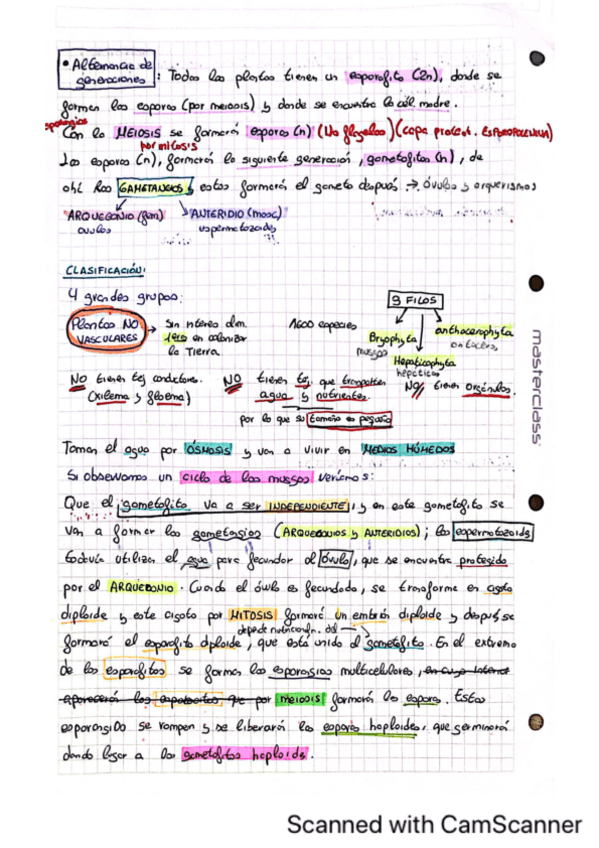 • Alternancia de
generaciones : Todas las plantas tienen un esporofito (2n), donde se
forman las esporas (por meiosis) y donde se encuentra la cél. madre.
esporangios
Con la MEIOSIS se formará esporas (n) (No flagelos) (capa protect. ESPOROPOLENINA)
por mitosis
Las esporas (n), formarán la siguiente generación, gametofitos (n), de
ahí los GAMETANGIOS y estos formarán el gameto después → óvulos y
ARQUEGONIO (fem) ANTERIDIO (masc)
óvulos espermatozoides
CLASIFICACIÓN:
4 grandes grupos:
3 FILOS
Plantas NO
VASCULARES → Sin interés alim.
1eras en colonizar
la Tierra
1600 especies
Bryophyta
musgos
Hepaticophyta
hepáticas
anthocerophyta
antoceros
NO tienen tej conductores. NO tienen tej. que transporten NO tienen orgánulos.
(xilema y floema) agua y nutrientes.
por lo que su tamaño es pequeño
Toman el agua por ÓSMOSIS y van a vivir en MEDIOS HÚMEDOS
Si observamos un ciclo de los musgos veríamos:
Que el gametofito va a ser INDEPENDIENTE, y en este gametofito se
van a formar los gametangios (ARQUEGONIOS y ANTERIDIOS); los espermatozoids
todavía utilizan el agua para fecundar al óvulo, que se encuentra protegido
por el ARQUEGONIO. Cuando el óvulo es fecundado, se transforma en cigoto
diploide y este cigoto por MITOSIS formará un embrión diploide y después se
depende nutricionalm. del
formará el esporofito diploide, que está unido al gametofito. En el extremo
de los esporofitos se forman los esporangios multicelulares, en cuyo interior
aparecerán los esporocitos que por MEIOSIS formarán las esporas. Estos
esporangios se rompen y se liberarán las esporas haploides, que germinará
dando lugar a los gametofitos haploids.
masterclass
Scanned with CamScanner